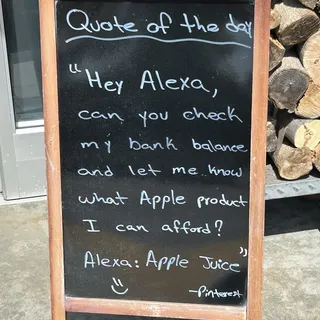 Quote of the day
"Hey Alexa,
can you check
my bank balance
and let me know
what Apple product
I can afford?
Alexa: Apple Juice"
-Pinterest